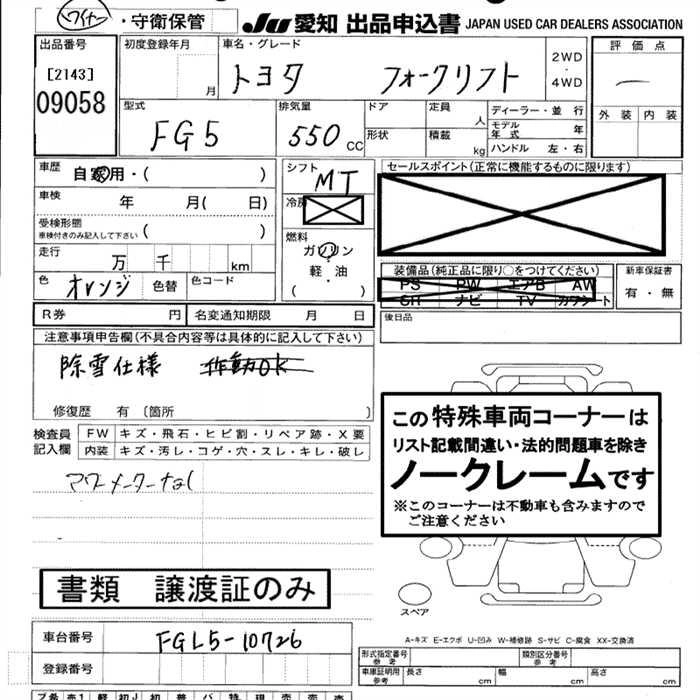 ワイナー・守衛保管
JU 愛知 出品申込書 JAPAN USED CAR DEALERS ASSOCIATION
出品番号 [2143] 09058
初度登録年月 月
車名・グレード トヨタ フォークリフト
2WD・4WD
評価点 ー
外装 内装
型式 FG5
排気量 550 cc
ドア 形状
定員 人
積載 kg
ディーラー・並行
モデル年式 年
ハンドル 左・右
車歴 自家用・( )
車検 年 月( 日)
受検形態 車検付きのみ記入して下さい ( )
走行 万 千 km
色 オレンジ 色替 色コード
シフト MT
冷房
燃料 ガソリン・軽・油・( )
セールスポイント(正常に機能するものに限ります)
装備品(純正品に限り○をつけてください)
PS PW エアB AW
SR ナビ TV カワシート
新車保証書 有・無
R券 円 名変通知期限 月 日
後日品
注意事項申告欄(不具合内容等は具体的に記入して下さい)
除雪仕様 作動OK
修復歴 有 〔箇所 〕
検査員記入欄
FW キズ・飛石・ヒビ割・リペア跡・X要
内装 キズ・汚し・コゲ・穴・スレ・キレ・破レ
アワーメーターなし
この特殊車両コーナーは
リスト記載間違い・法的問題車を除き
ノークレームです
※このコーナーは不動車も含みますので
ご注意ください
書類 譲渡証のみ
スペア
A-キズ E-エクボ U-凹み W-補修跡 S-サビ C-腐食 XX-交換済
車台番号 FGL5-10726
登録番号
形式指定番号 参考 類別区分番号 参考
車庫証明用 参考 長さ cm 幅 cm 高さ cm